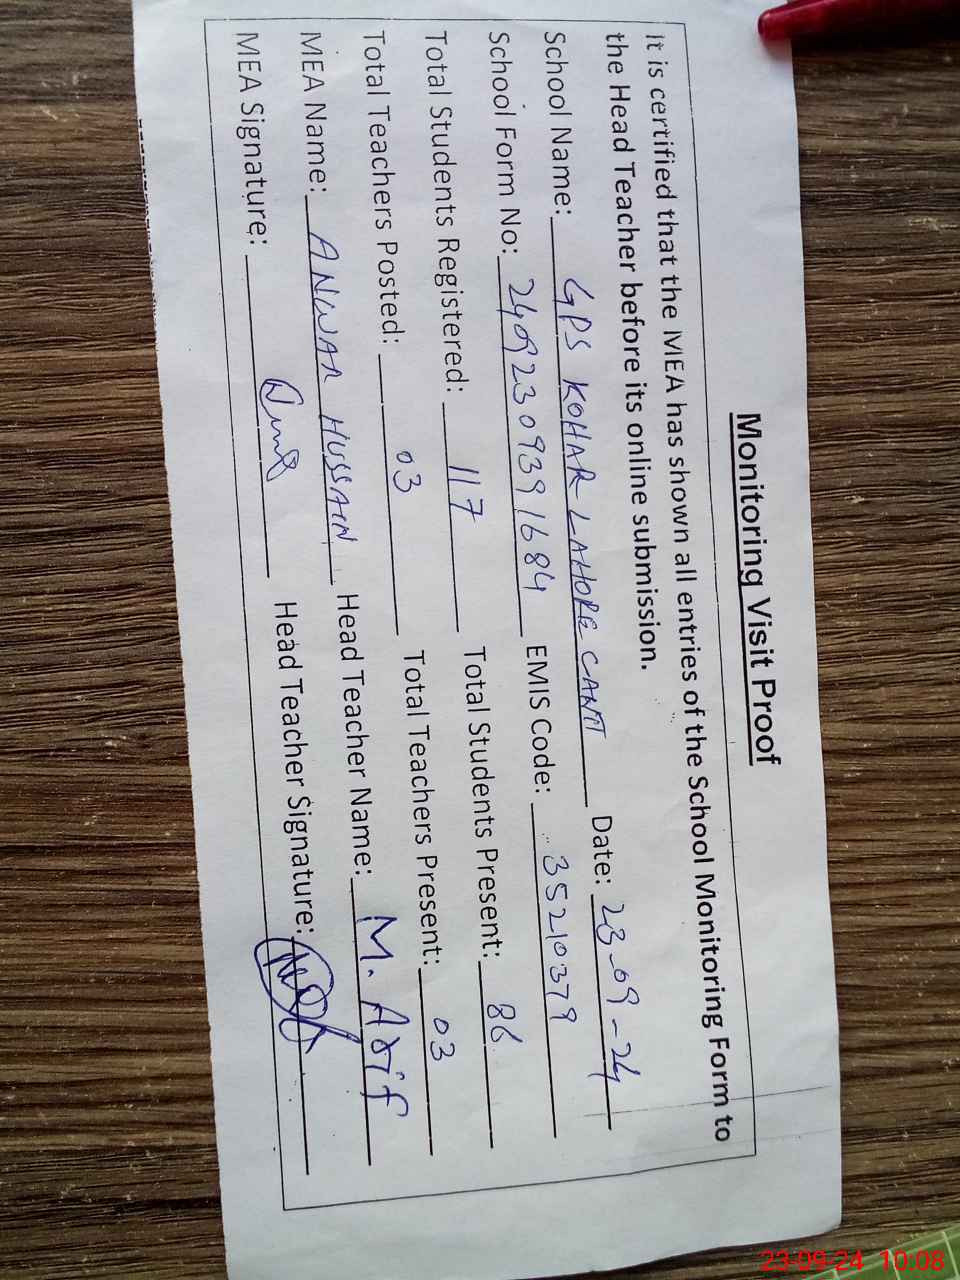 Monitoring Visit Proof
It is certified that the MEA has shown all entries of the School Monitoring Form to
the Head Teacher before its online submission.
School Name: GPS KOHAR LAHORE CANTT Date: 23-09-24
School Form No: 24092309391684 EMIS Code: 35210379
Total Students Registered: 117 Total Students Present: 86
Total Teachers Posted: 03 Total Teachers Present: 03
MEA Name: ANWAR HUSSAIN Head Teacher Name: M. Arif
MEA Signature: Head Teacher Signature:
23-09-24 10:08